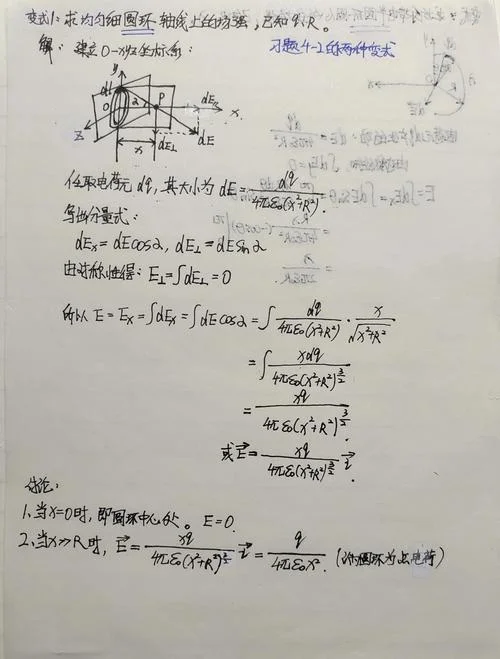 变式1:求均匀细圆环轴线上的场强,已知q、R。
解: 建立O-xyz坐标系: 习题4-2的两种变式
y
dl
O α P dEx x
z x dE⊥ dE
任取电荷元dq,其大小为 dE=dq/4πε₀(x²+R²).
写出分量式:
dEx=dEcosα, dE⊥=dEsinα
由对称性得: E⊥=∫dE⊥=0
所以 E=Ex=∫dEx=∫dEcosα=∫dq/4πε₀(x²+R²)·x/√x²+R²
=∫xdq/4πε₀(x²+R²)^3/2
=xq/4πε₀(x²+R²)^3/2.
或E⃗=xq/4πε₀(x²+R²)^3/2 i⃗.
讨论:
1.当x=0时,即圆环中心处。E=0.
2.当x≫R时, E⃗=xq/4πε₀(x²+R²)^3/2 i⃗=q/4πε₀x². (圆环为点电荷)